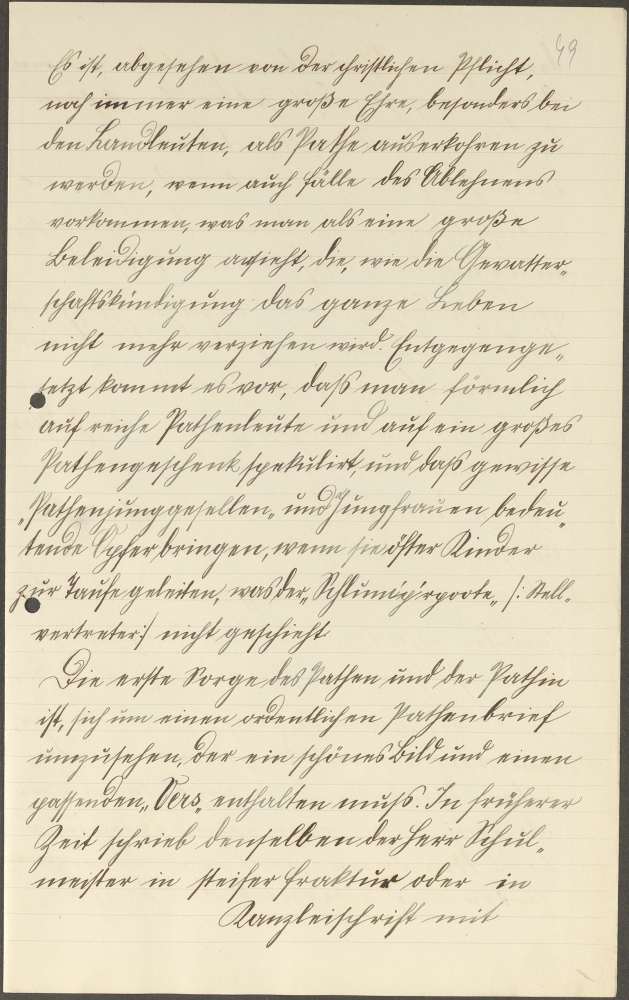 49
Es ist, abgesehen von der christlichen Pflicht,
noch immer eine große Ehre, besonders bei
den Landleuten, als Pathe auserkohren zu
werden, wenn auch Fälle des Ablehnens
vorkommen, was man als eine große
Beleidigung ansieht, die, wie die Gevatter„
schaftskündigung das ganze Leben
nicht mehr verziehen wird. Entgegenge„
setzt kommt es vor, daß man förmlich
auf reiche Pathenleute und auf ein großes
Pathengeschenk spekulirt, und daß gewisse
„Pathenjunggesellen„ und Jungfrauen bedeu„
tende Opfer bringen, wenn sie öfter Kinder
zur Taufe geleiten, was der „Schlumpirpoote„ /: Stell„
vertreter :/ nicht geschieht
Die erste Sorge des Pathen und der Pathin
ist, sich um einen ordentlichen Pathenbrief
umzusehen, der ein schönes Bild und einen
passenden „Vers„ enthalten muß. In früherer
Zeit schrieb denselben der Herr Schul„
meister in steifer Fraktur oder in
Kanzleischrift mit